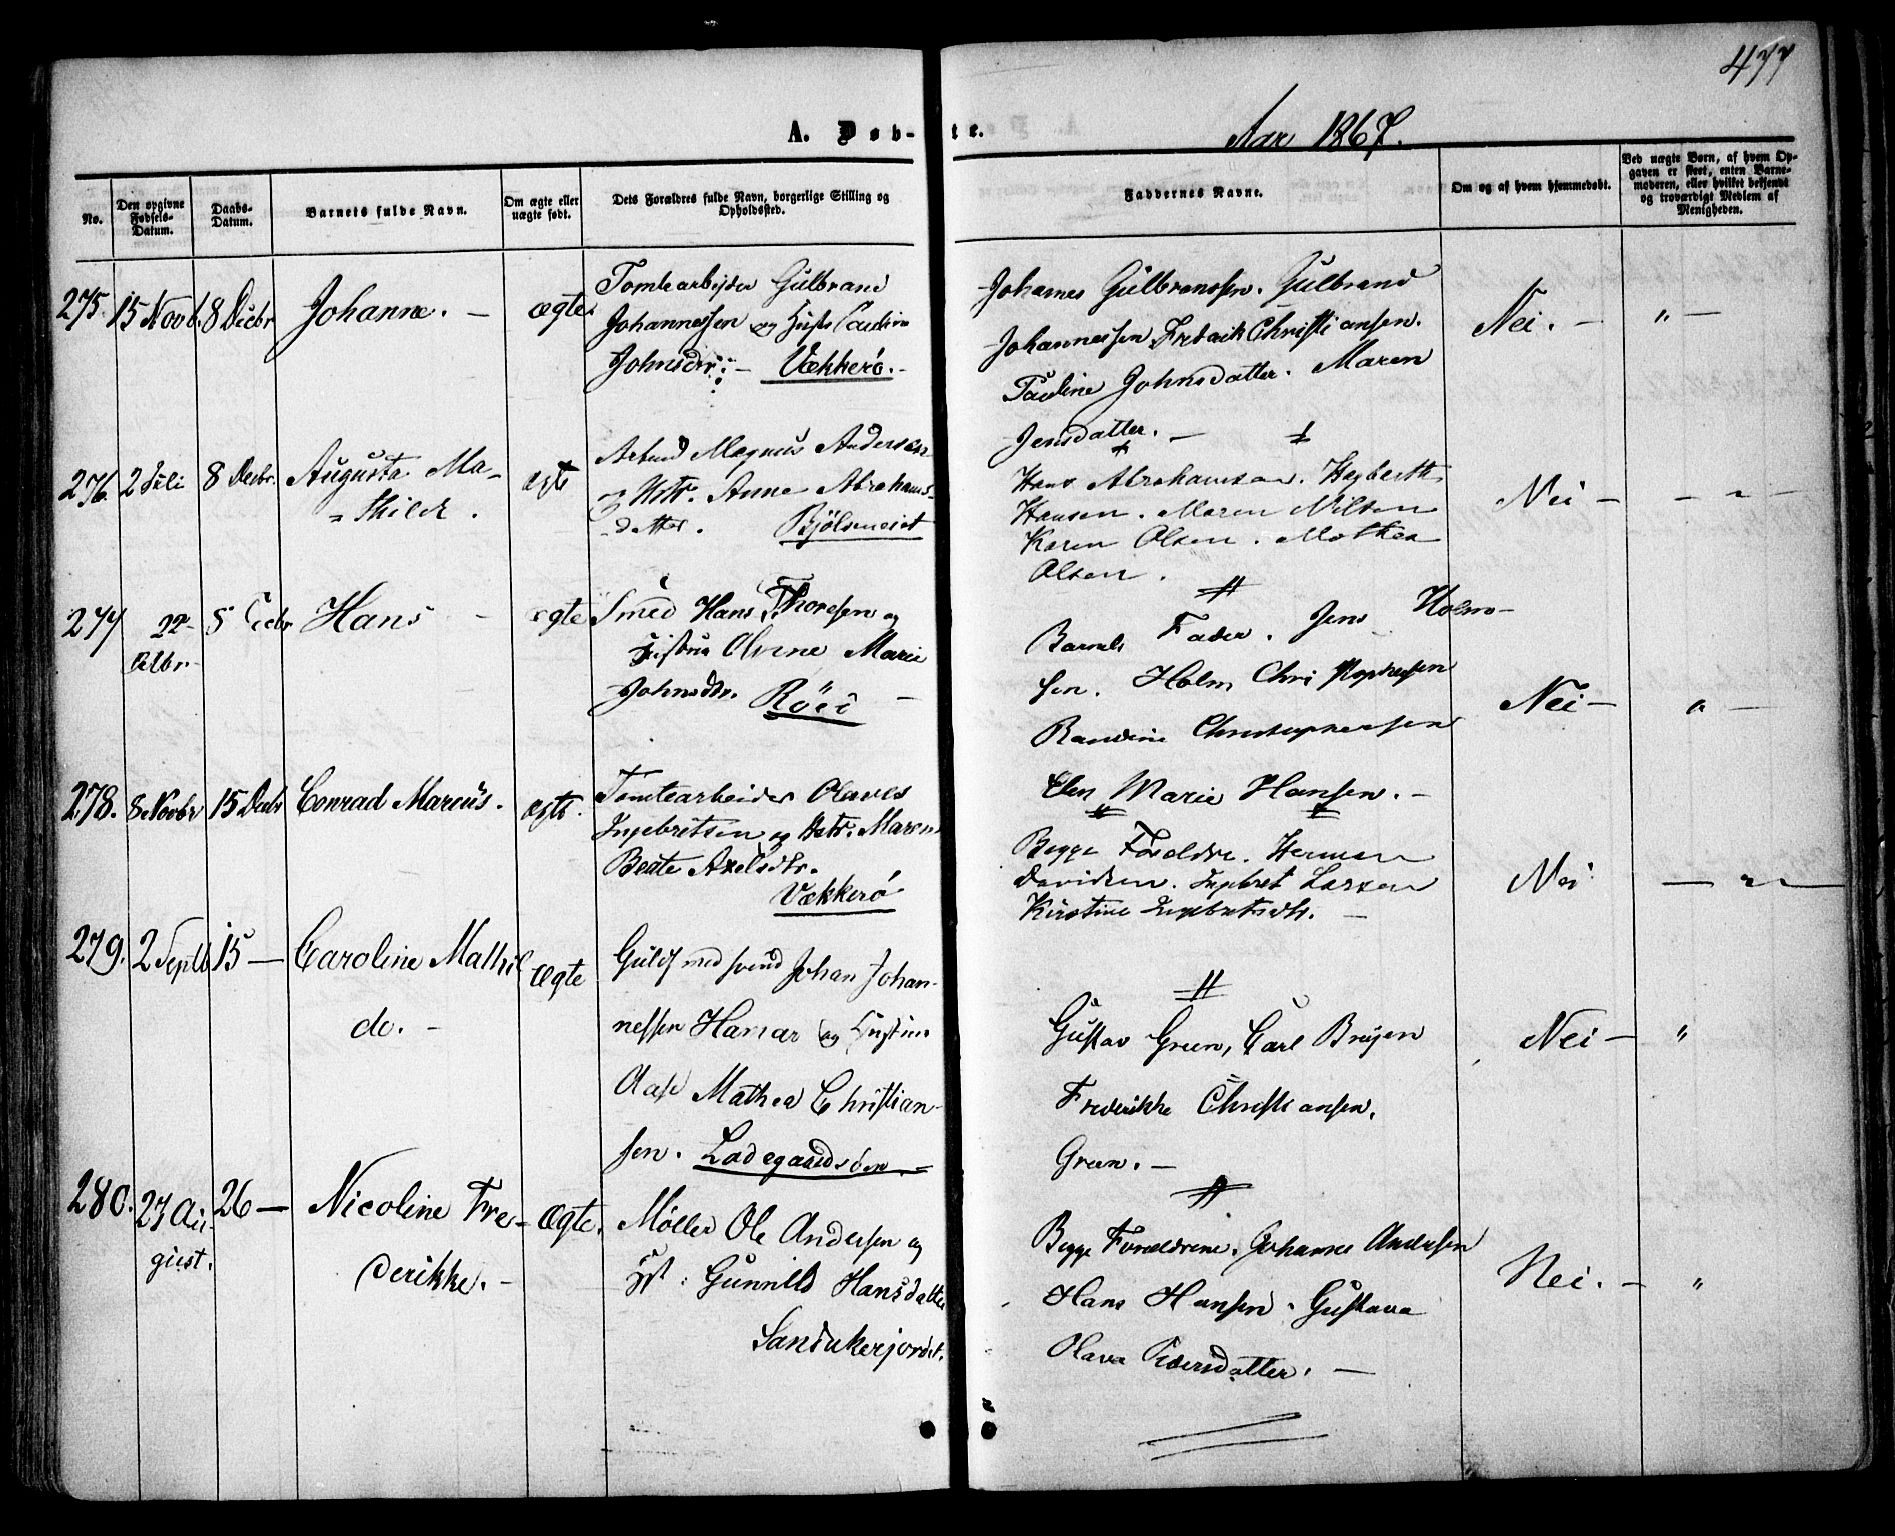 477
A. Døb-te.
Aar 1867.
No.
Den opgivne Fødsels-Datum.
Daabs-Datum.
Barnets fulde Navn.
Om ægte eller uægte født.
Dets Forældres fulde Navn, borgerlige Stilling og Opholdssted.
Faddernes Navne.
Om og af hvem hjemmedøbt.
Ved uægte Børn, af hvem Opgaven er skeet, enten Barnemoderen, eller hvilket bekjendt og troværdigt Medlem af Menigheden.
275. 15 Novb. 8 Decbr Johanne. — ægte.
Tomtearbejder Gulbrand
Johannessen og Hustr Pauline
Johnsdr: — Vækkerø. -
Johames Gulbranssen. Gulbrand
Johannessen Frederik Christiansen.
Pauline Johnsdatter. Maren
Jensdatter. —
Nei. — " —
276. 2 Juli 8 Decbr. Augusta Ma-
= thilde. ægte
Arbmd Magnus Andersen
og Hstr. Anne Abrahams-
datter. Bjølseneiet
Hans Abrahamsen. Hagbarth
Hansen. Maren Nilsen
Karen Olsen. Mathea
Olsen.
Nei — — " —
277 22- 8 Decbr Hans - ægte
Octbr.
Smed Hans Thoresen og
Hustru Olvine Marie
Johnsdtr. Røei —
Barnets Fader. Jens Holm-
sen. Holm Christophersen
Randine Christophersen
Elen Marie Hansen. -
Nei — " —
278. 8 Novbr 15 Decbr Conrad Marcus. ægte.
Tomtearbeider Olaves
Ingebretsen og Hstr. Maren
Beate Axelsdtr.
Vækkerø
Begge Forældre. Herman
Davidsen. Ingebret Larsen
Kirstine Ingebretsdtr. —
Nei — " —
279. 2 Septb 15 — Caroline Mathil
de. - ægte
Guldsmedsvend Johan Johan-
nessen Hamar og Hustru
Aase Mathea Christian-
sen. Ladegaardsøen =
Gustav Green, Carl
Frederikke Christiansen.
Green. —
Nei — "
280. 27 Au- 26 — Nicoline Fre-
gust. derikke. - Ægte.
Møller Ole Andersen og
Hst: Gunnild Hansdatter
Sandakerjordet.
Begge Forældrene. Johannes Andersen
Hans Hansen. Gustava
Olava Pedersdatter. —
Nei. — "